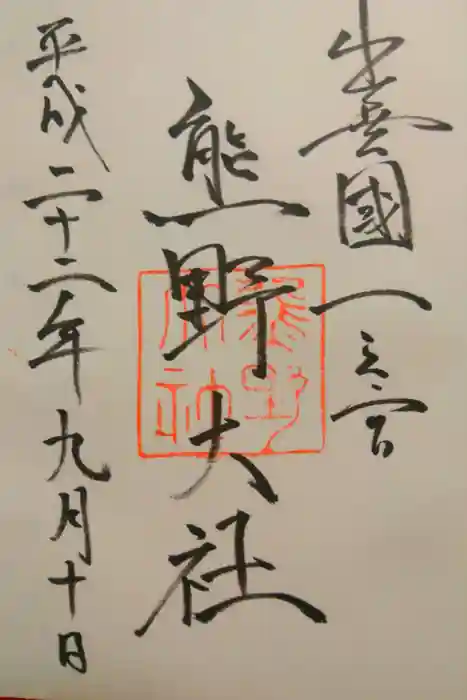 出雲國一之宮
熊野大社
平成二十二年九月十日
熊野大社